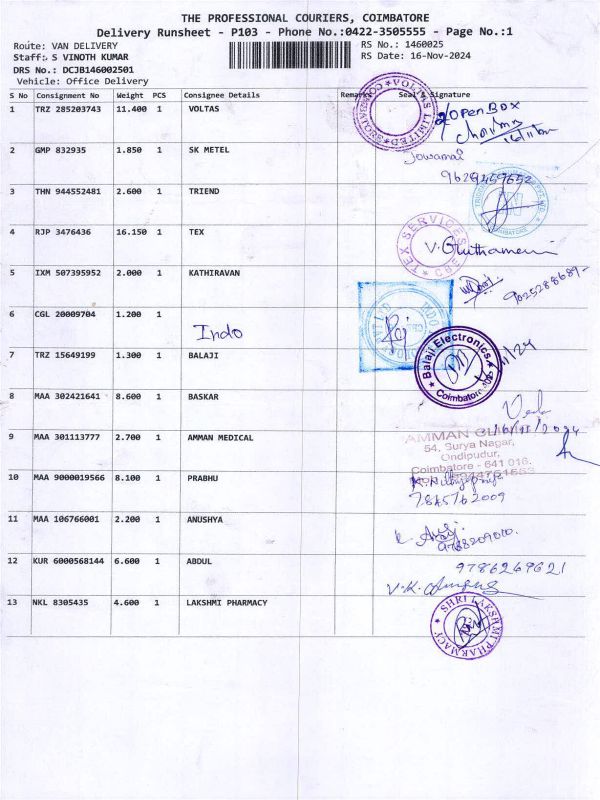 THE PROFESSIONAL COURIERS, COIMBATORE
Delivery Runsheet - P103 - Phone No.:0422-3505555 - Page No.:1
Route: VAN DELIVERY
RS No.: 1460025
Staff: S VINOTH KUMAR
RS Date: 16-Nov-2024
DRS No.: DCJB146002501
Vehicle: Office Delivery
S No Consignment No Weight PCS Consignee Details Remarks Seal & Signature
1 TRZ 285203743 11.400 1 VOLTAS
VOLTAS LIMITED
Open BOX
2 GMP 832935 1.850 1 SK METEL
9629459652
3 THN 944552481 2.600 1 TRIEND
COIMBATORE
4 RJP 3476436 16.150 1 TEX
TEX SERVICES
CBE
5 IXM 507395952 2.000 1 KATHIRAVAN
9025288689
6 CGL 20009704 1.200 1
Indo
INDO
7 TRZ 15649199 1.300 1 BALAJI
Balaji Electronics
Coimbatore
8 MAA 302421641 8.600 1 BASKAR
16/11/2024
9 MAA 301113777 2.700 1 AMMAN MEDICAL
AMMAN
54, Surya Nagar,
Ondipudur,
Coimbatore - 641 016.
10 MAA 9000019566 8.100 1 PRABHU
7845762009
11 MAA 106766001 2.200 1 ANUSHYA
12 KUR 6000568144 6.600 1 ABDUL
9786269621
13 NKL 8305435 4.600 1 LAKSHMI PHARMACY
SHRI LAKSHMI PHARMACY